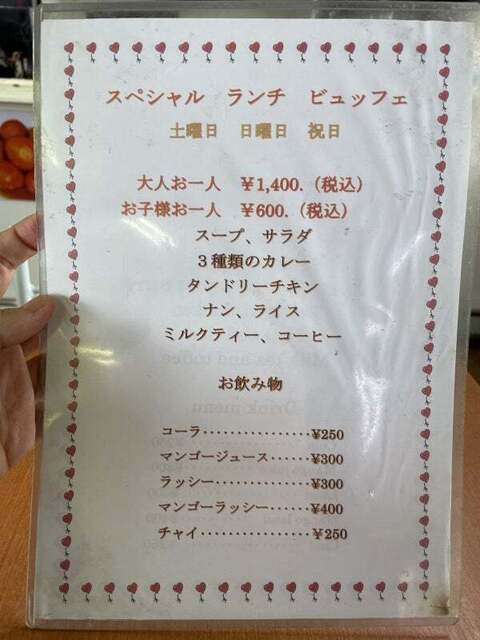 スペシャル ランチ ビュッフェ
土曜日 日曜日 祝日
大人お一人 ￥1,400.（税込）
お子様お一人 ￥600.（税込）
スープ、サラダ
３種類のカレー
タンドリーチキン
ナン、ライス
ミルクティー、コーヒー
お飲み物
コーラ················¥250
マンゴージュース······¥300
ラッシー··············¥300
マンゴーラッシー······¥400
チャイ················¥250